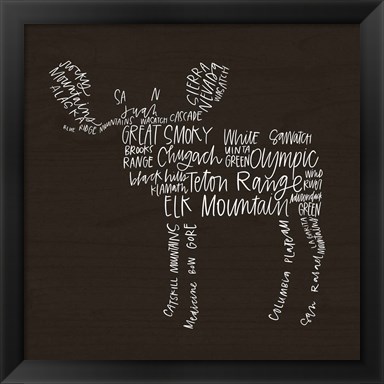 Rocky
Mountains
ALASKA
SIERRA
NEVADA
WASATCH
SA N
Juan
BLUE RIDGE MOUNTAINS WASATCH CASCADE
GREAT SMOKY White SAWATCH
BROOKS RANGE Chugach UINTA GREEN Olympic
black hills KLAMATH Teton Range WIND RIVER
ELK Mountain GREEN
CATSKILL MOUNTAINS
Medicine BOW GORE
COLUMBIA PLATEAU
San Rafael
LA GARITA
MOUNTAINS